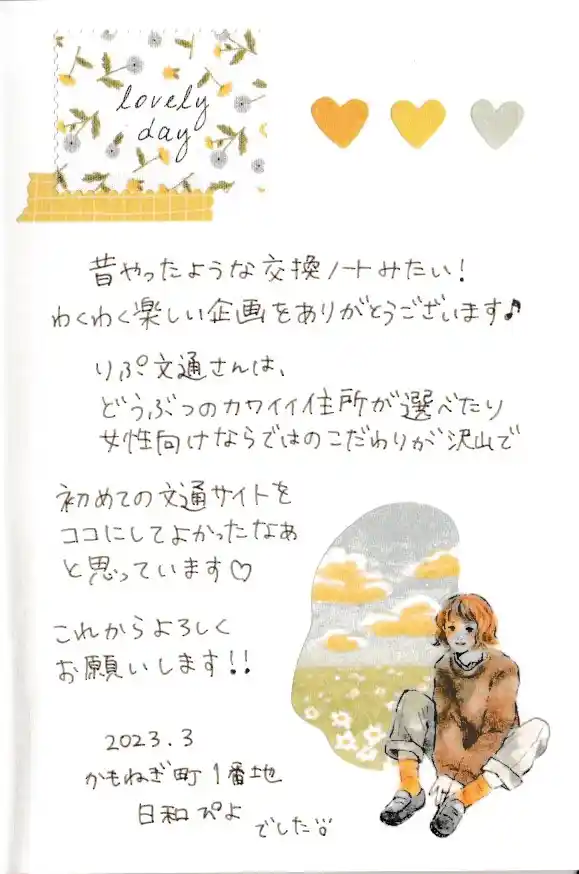 lovely
day
昔やったような交換ノートみたい!
わくわく楽しい企画をありがとうございます♪
りぷ文通さんは、
どうぶつのカワイイ住所が選べたり
女性向けならではのこだわりが沢山で
初めての文通サイトを
ココにしてよかったなぁ
と思っています♡
これからよろしく
お願いします!!
2023.3
かもねぎ町1番地
日和ぴよ
でした